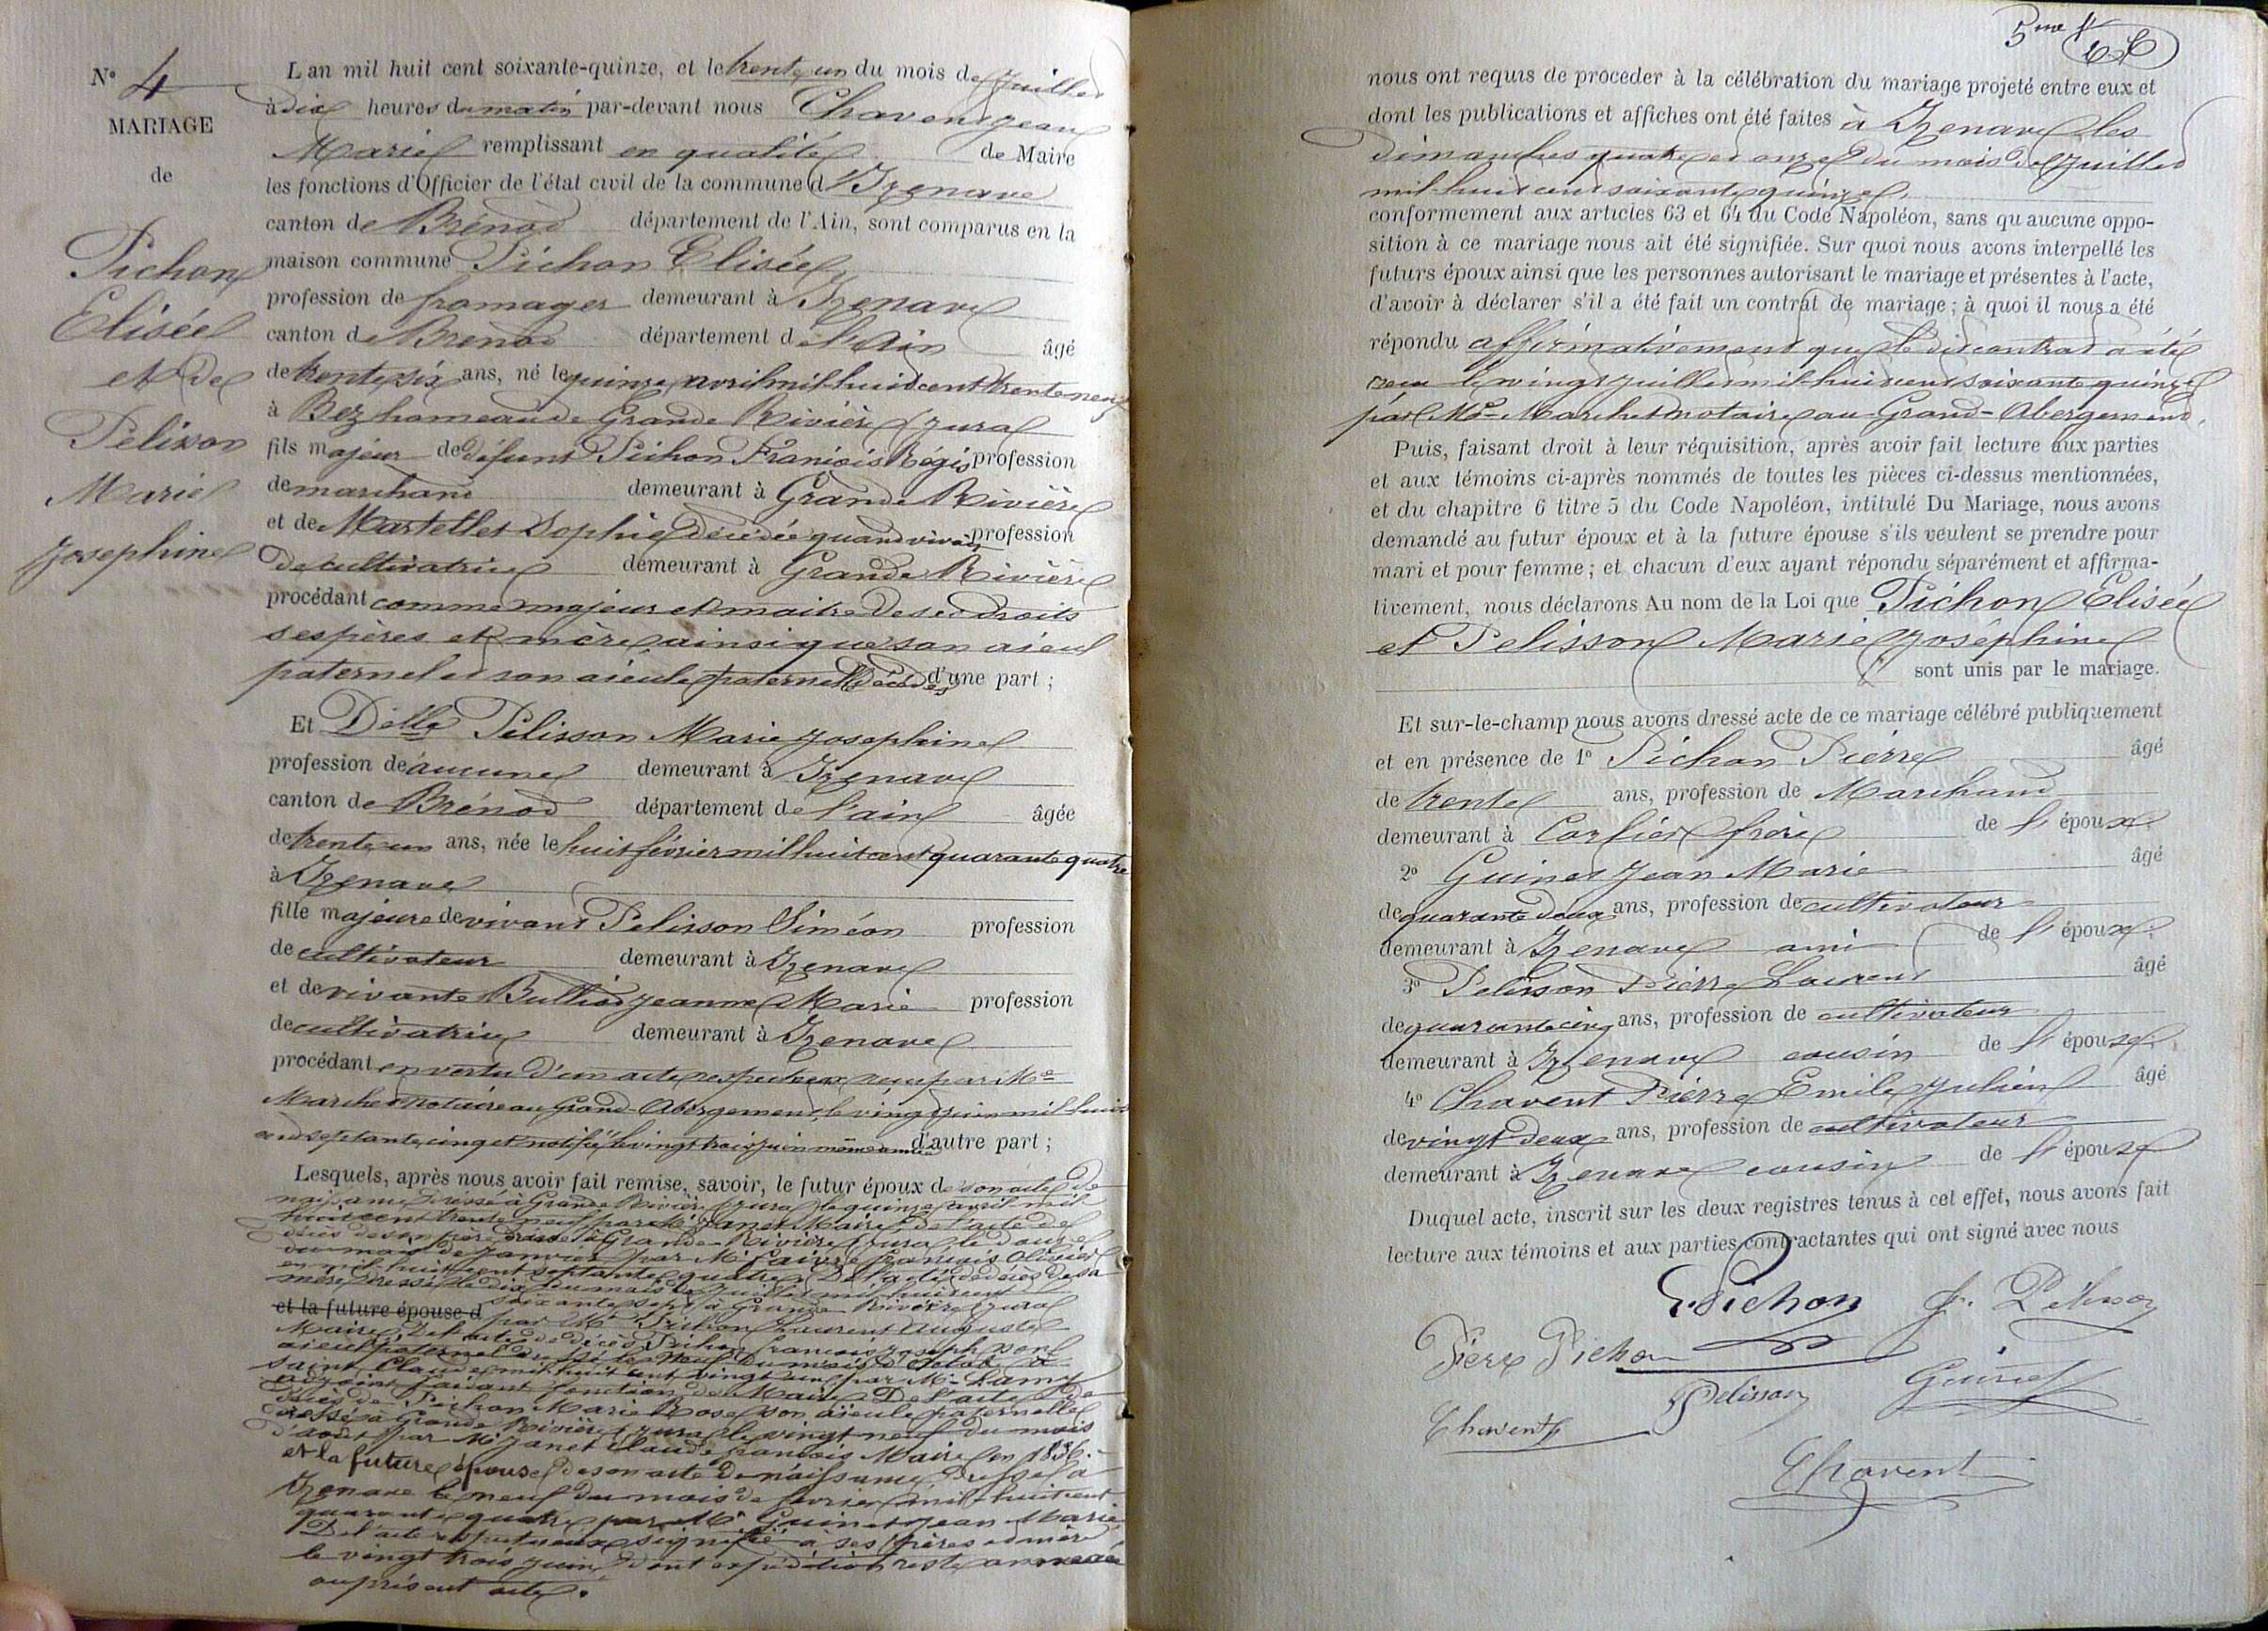 N° 4
MARIAGE
de
Pichon
Elisée
et de
Pelisson
Marie
Josephine
L an mil huit cent soixante-quinze, et le trente un du mois de Juillet
à dix heures du matin par-devant nous Chavent Jean
Marie remplissant en qualité de Maire
les fonctions d'Officier de l'état civil de la commune d'Izenave
canton de Brénod département de l'Ain, sont comparus en la
maison commune Pichon Elisée
profession de fromager demeurant à Izenave
canton de Brénod département de l'Ain âgé
de trente six ans, né le quinze avril mil huit cent trente neuf
à Bez hameau de Grande Rivière (Jura)
fils majeur de défunt Pichon François Régis profession
de marchand demeurant à Grande Rivière
et de Martelet Sophie décédée quand vivait profession
de cultivatrice demeurant à Grande Rivière
procédant comme majeur et maitre de ses droits
ses pères et mère, ainsi que son aieul
paternel et son aieule paternelle décédés d'une part ;
Et Delle Pelisson Marie Josephine
profession de aucune demeurant à Izenave
canton de Brénod département de l'ain âgée
de trente un ans, née le huit février mil huit cent quarante quatre
à Izenave
fille majeure de vivant Pelisson Siméon profession
de cultivateur demeurant à Izenave
et de vivante Bulliod Jeanne Marie profession
de cultivatrice demeurant à Izenave
procédant en vertu d'un acte respectueux reçu par Me
Marchet notaire au Grand-Abergement, le vingt juin mil huit
cent septante cinq et notifié le vingt trois juin même année d'autre part ;
Lesquels, après nous avoir fait remise, savoir, le futur époux de son acte de
naissance dressé à Grande Rivière (Jura) le quinze avril mil
huit cent trente neuf par Mr Janet Maire, De l'acte de
décès de son père dressé à Grande Rivière (Jura) le douze
du mois de Janvier par Mr Faivre François Olivier
en mil huit cent septante quatre, De l'acte de décès de sa
mère dressé le dix du mois de Juillet mil huit cent
et la future épouse d soixante sept à Grande Rivière (Jura)
par Mr Pichon Laurent Auguste
Maire, De l'acte de décès Pichon François Joseph son
aieul paternel dressé le neuf du mois d'Octobre à
Saint Claude mil huit cent vingt un par Mr Lamy
adjoint faisant fonction de Maire, De l'acte de
décès de Pichon Marie Rose son aieule paternelle
dressé à Grande Rivière (Jura) le vingt neuf du mois
d'août par Mr Janet Claude François Maire en 1836.
et la future épouse de son acte de naissance dressé à
Izenave le neuf du mois de février mil huit cent
quarante quatre par Mr Guinet Jean Marie
De l'acte respectueux signifié à ses pères et mère
le vingt trois juin, dont expédition reste annexée
au présent acte.
5me f
nous ont requis de proceder à la célébration du mariage projeté entre eux et
dont les publications et affiches ont été faites à Izenave les
dimanches quatre et onze du mois de Juillet
mil huit cent soixante quinze,
conformement aux articles 63 et 64 du Code Napoléon, sans qu aucune oppo-
sition à ce mariage nous ait été signifiée. Sur quoi nous avons interpellé les
futurs époux ainsi que les personnes autorisant le mariage et présentes à l'acte,
d'avoir à déclarer s'il a été fait un contrat de mariage ; à quoi il nous a été
répondu affirmativement que le dit contrat a été
reçu le vingt juillet mil huit cent soixante quinze
par Me Marchet notaire au Grand-Abergement.
Puis, faisant droit à leur réquisition, après avoir fait lecture aux parties
et aux témoins ci-après nommés de toutes les pièces ci-dessus mentionnées,
et du chapitre 6 titre 5 du Code Napoléon, intitulé Du Mariage, nous avons
demandé au futur époux et à la future épouse s'ils veulent se prendre pour
mari et pour femme ; et chacun d'eux ayant répondu séparément et affirma-
tivement, nous déclarons Au nom de la Loi que Pichon Elisée
et Pelisson Marie Joséphine
sont unis par le mariage.
Et sur-le-champ nous avons dressé acte de ce mariage célébré publiquement
et en présence de 1° Pichon Pierre âgé
de trente ans, profession de Marchand
demeurant à Corlier frère de l'époux
2° Guinet Jean Marie âgé
de quarante deux ans, profession de cultivateur
demeurant à Izenave ami de l'époux
3° Pelisson Pierre Laurent âgé
de quarante cinq ans, profession de cultivateur
demeurant à Izenave cousin de l'épouse
4° Chavent Pierre Emile Julien âgé
de vingt deux ans, profession de cultivateur
demeurant à Izenave cousin de l'épouse
Duquel acte, inscrit sur les deux registres tenus à cet effet, nous avons fait
lecture aux témoins et aux parties contractantes qui ont signé avec nous
E. Pichon J. Pelisson
Pierre Pichon
Pelisson Guinet
Chavent
Chavent